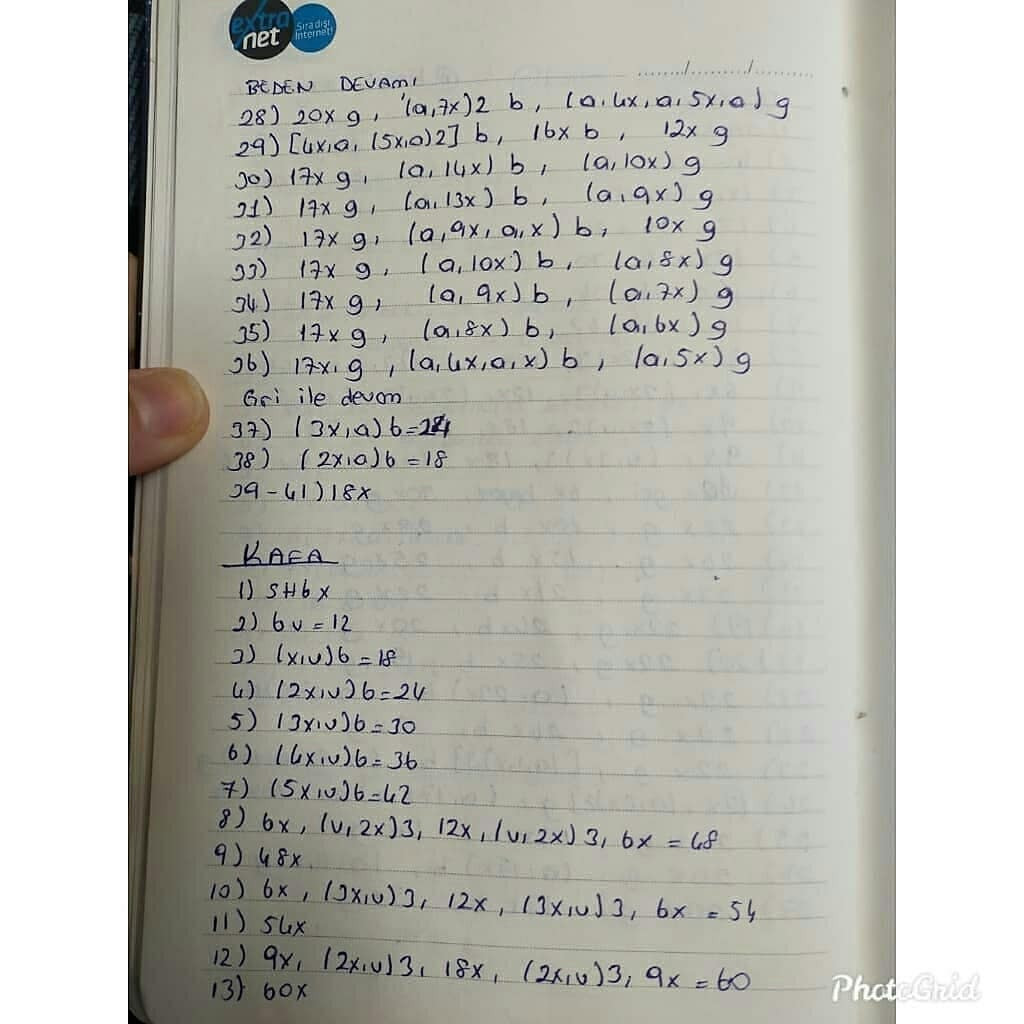 extra net Sıra dışı İnternet!
......./......./.......
BEDEN DEVAMI
28) 20x g, (a,7x)2 b, (a,4x,a,5x,a) g
29) [4x,a,(5x,a)2] b, 16x b, 12x g
30) 17x g, (a,14x) b, (a,10x) g
31) 17x g, (a,13x) b, (a,9x) g
32) 17x g, (a,9x,a,x) b, 10x g
33) 17x g, (a,10x) b, (a,8x) g
34) 17x g, (a,9x) b, (a,7x) g
35) 17x g, (a,8x) b, (a,6x) g
36) 17x g, (a,4x,a,x) b, (a,5x) g
Gri ile devam
37) (3x,a)6=24
38) (2x,a)6=18
39-41) 18x
KAFA
1) SH6x
2) 6v=12
3) (x,v)6=18
4) (2x,v)6=24
5) (3x,v)6=30
6) (4x,v)6=36
7) (5x,v)6=42
8) 6x, (v,2x)3, 12x, (v,2x)3, 6x=48
9) 48x
10) 6x, (3x,v)3, 12x, (3x,v)3, 6x=54
11) 54x
12) 9x, (2x,v)3, 18x, (2x,v)3, 9x=60
13) 60x
PhotoGrid